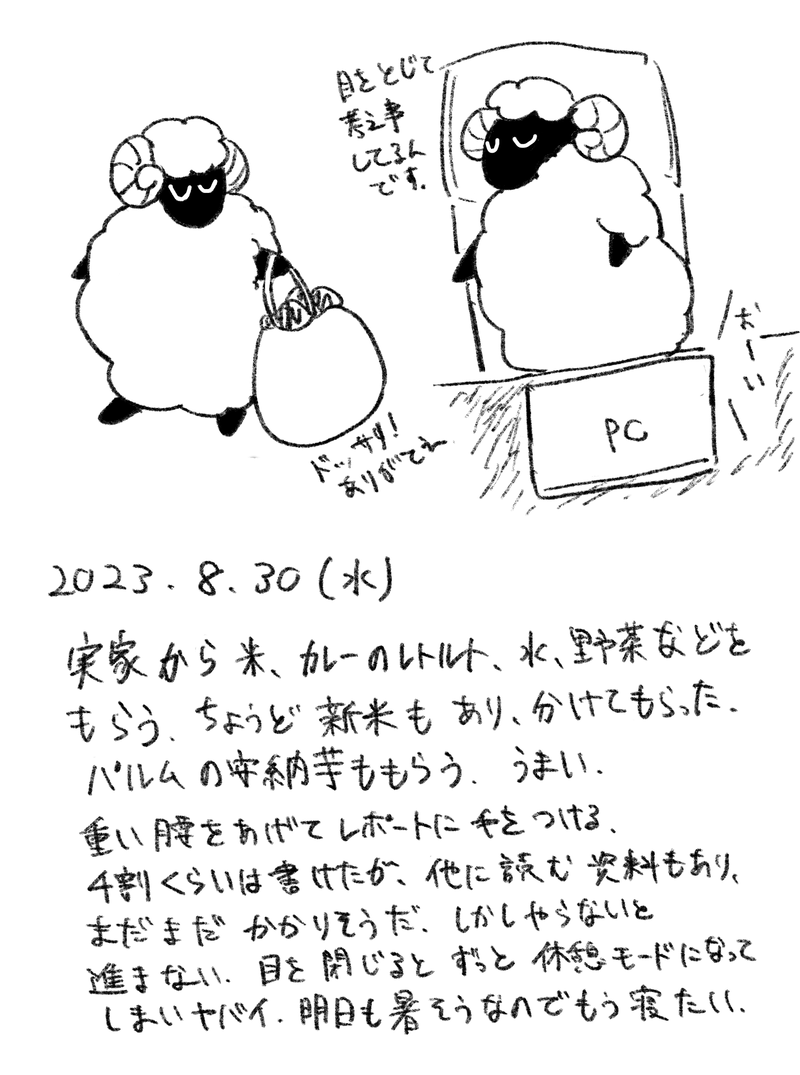 目をとじて
考え事
してるん
です。
おーい
PC
ドッサリ!
ありがてえ
2023.8.30(水)
実家から米、カレーのレトルト、水、野菜などを
もらう。ちょうど新米もあり、分けてもらった。
パルムの安納芋ももらう。うまい。
重い腰をあげてレポートに手をつける。
4割くらいは書けたが、他に読む資料もあり、
まだまだかかりそうだ。しかしやらないと
進まない。目を閉じるとずっと休憩モードになって
しまいヤバイ。明日も暑そうなのでもう寝たい。